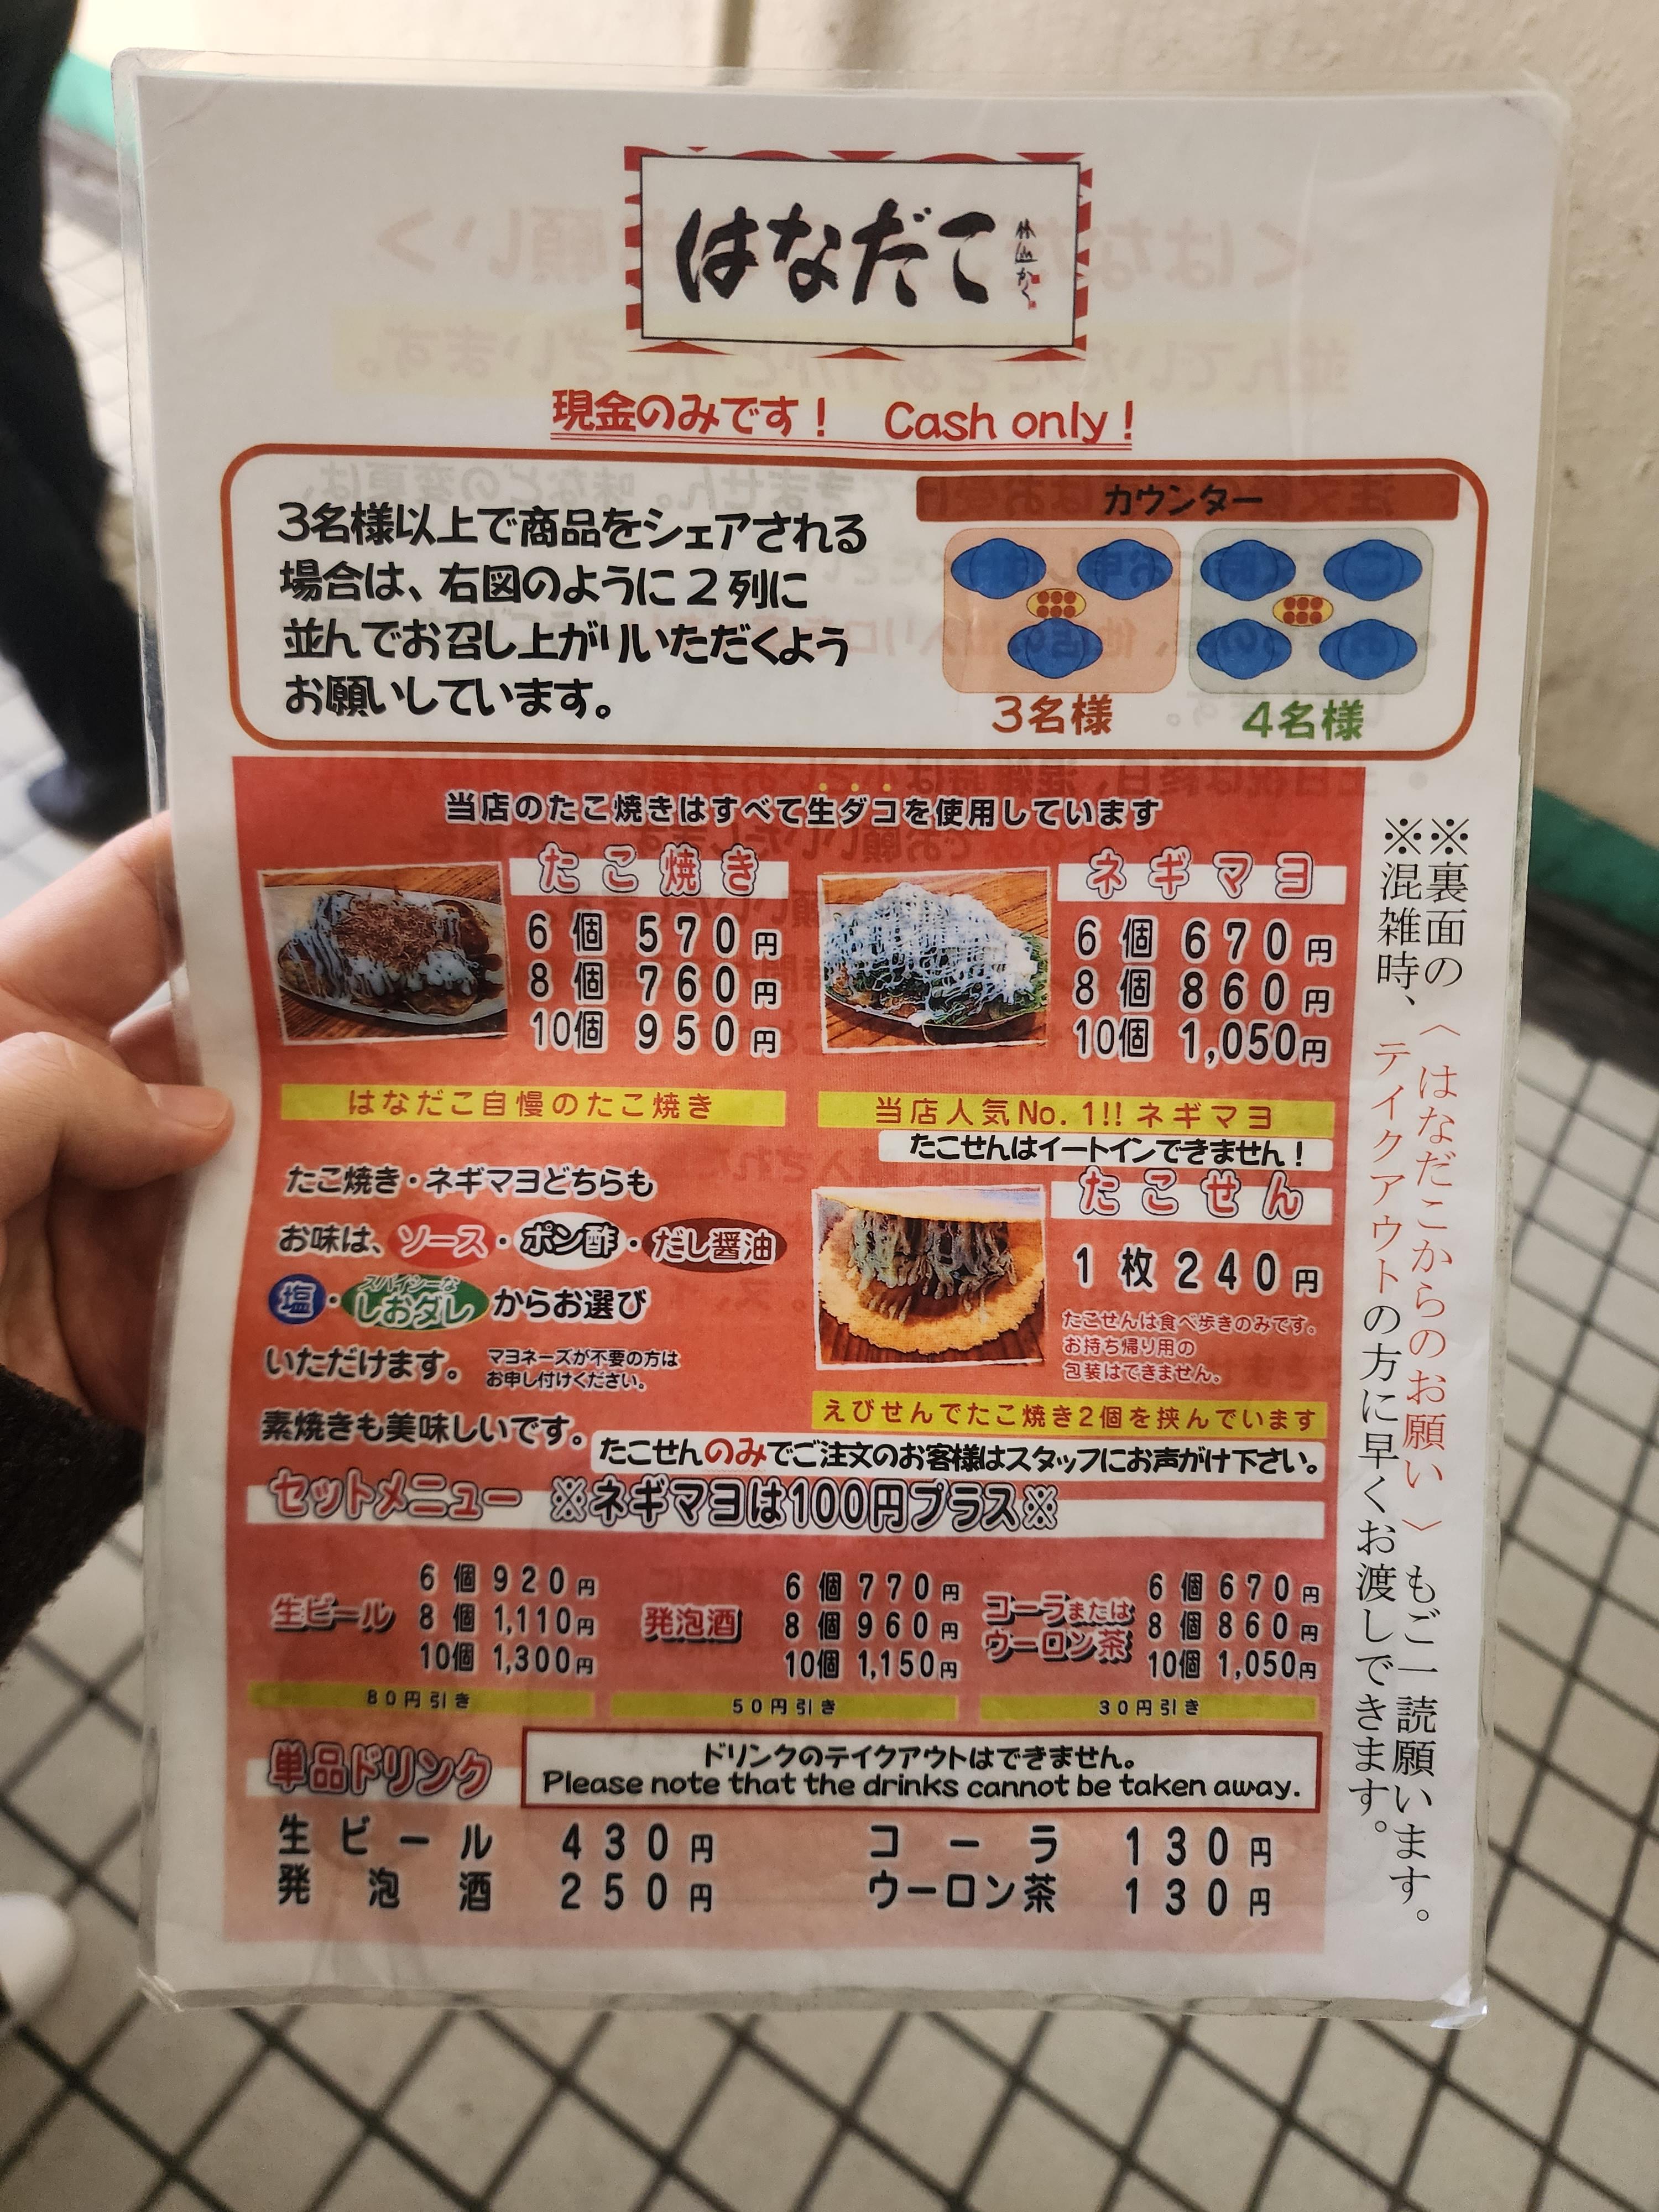 はなだこ
現金のみです！ Cash only！
3名様以上で商品をシェアされる
場合は、右図のように2列に
並んでお召し上がりいただくよう
お願いしています。
カウンター
3名様 4名様
当店のたこ焼きはすべて生ダコを使用しています
たこ焼き
6個 570円
8個 760円
10個 950円
はなだこ自慢のたこ焼き
ネギマヨ
6個 670円
8個 860円
10個 1,050円
当店人気No.1!! ネギマヨ
たこ焼き・ネギマヨどちらも
お味は、ソース・ポン酢・だし醤油
塩・スパイシーなしおダレからお選び
いただけます。 マヨネーズが不要の方は
お申し付けください。
素焼きも美味しいです。
たこせんはイートインできません！
たこせん
1枚240円
たこせんは食べ歩きのみです。
お持ち帰り用の
包装はできません。
えびせんでたこ焼き2個を挟んでいます
たこせんのみでご注文のお客様はスタッフにお声がけ下さい。
セットメニュー ※ネギマヨは100円プラス※
生ビール
6個 920円
8個 1,110円
10個 1,300円
80円引き
発泡酒
6個 770円
8個 960円
10個 1,150円
50円引き
コーラまたは
ウーロン茶
6個 670円
8個 860円
10個 1,050円
30円引き
単品ドリンク
ドリンクのテイクアウトはできません。
Please note that the drinks cannot be taken away.
生ビール 430円
発泡酒 250円
コーラ 130円
ウーロン茶 130円
※裏面の〈はなだこからのお願い〉もご一読願います。
※混雑時、テイクアウトの方に早くお渡しできます。